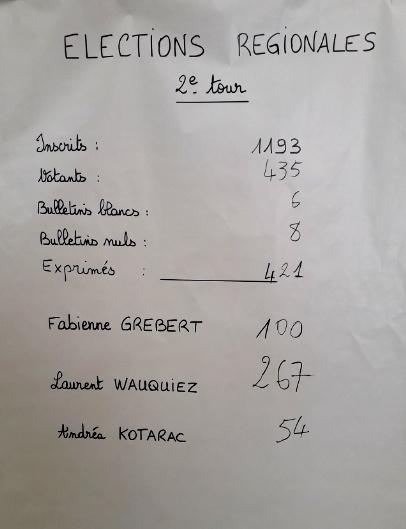 ELECTIONS REGIONALES
2e tour
Inscrits : 1193
Votants : 435
Bulletins blancs : 6
Bulletins nuls : 8
Exprimés : 421
Fabienne GREBERT 100
Laurent WAUQUIEZ 267
Andréa KOTARAC 54